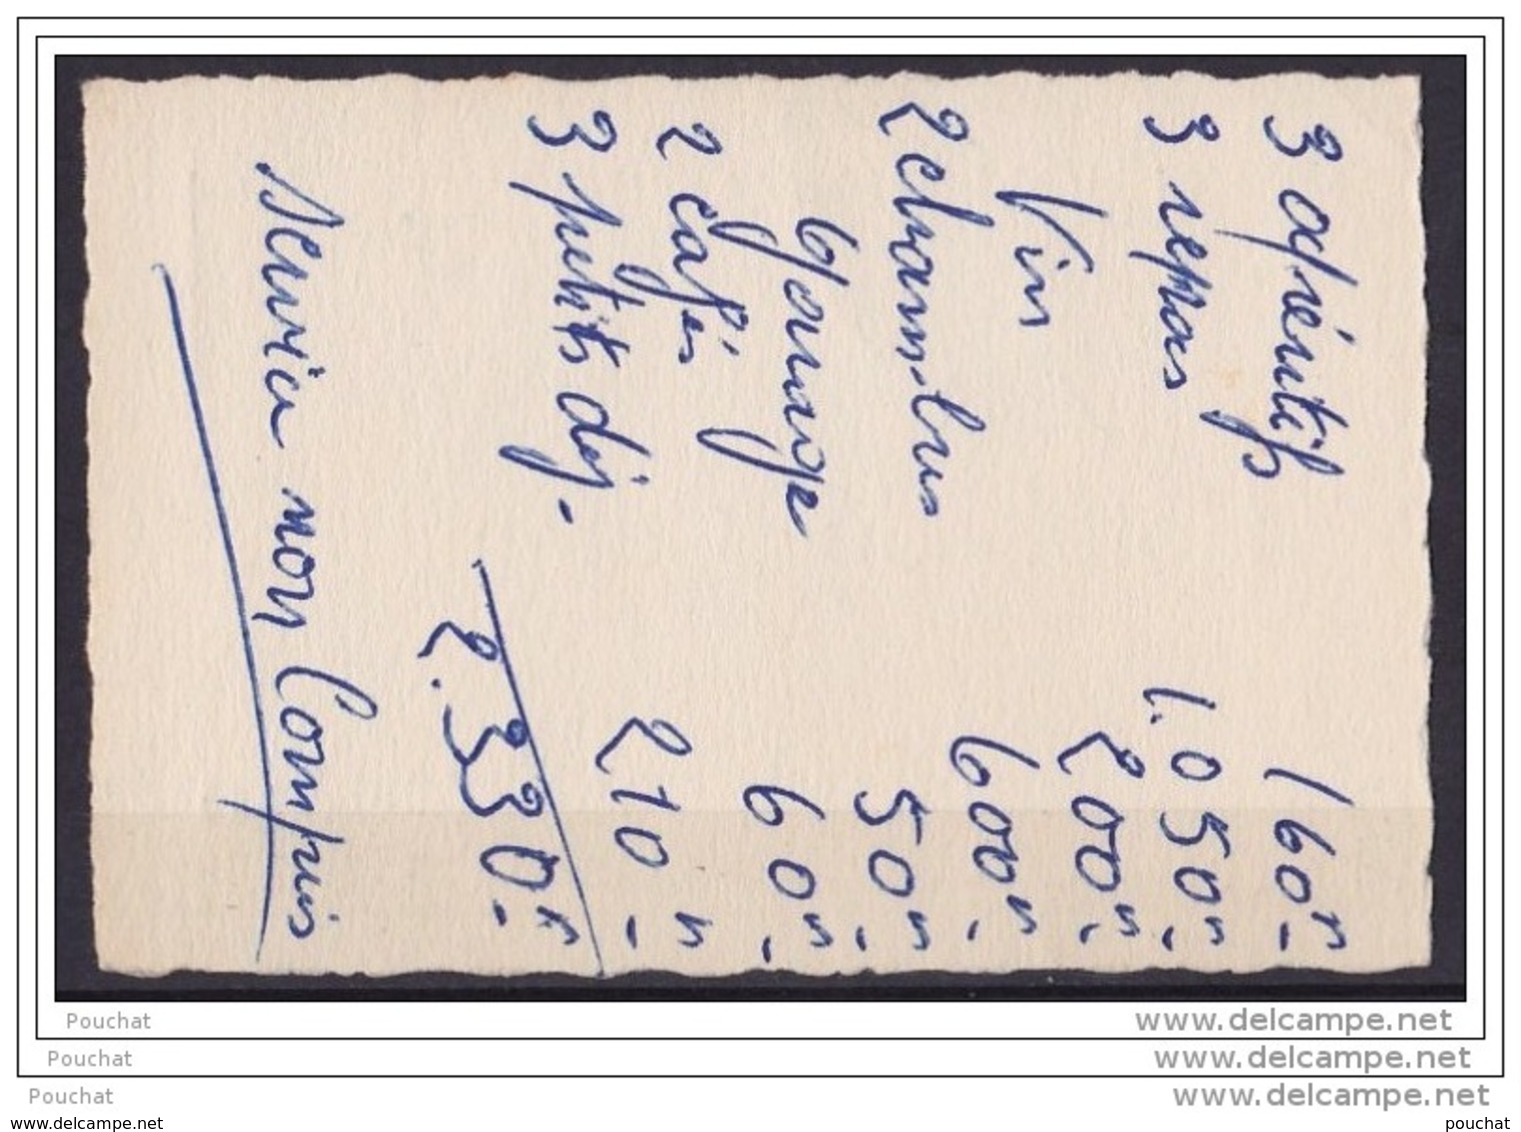 3 apéritifs 160 -
3 repas 1.050 -
Vin 200 -
2 chambres 600 -
Garage 50 -
2 cafés 60 -
3 petits déj. 210 -
2.330 -
Service non Compris
Pouchat
www.delcampe.net
Pouchat
www.delcampe.net
Pouchat
www.delcampe.net
www.delcampe.net
pouchat